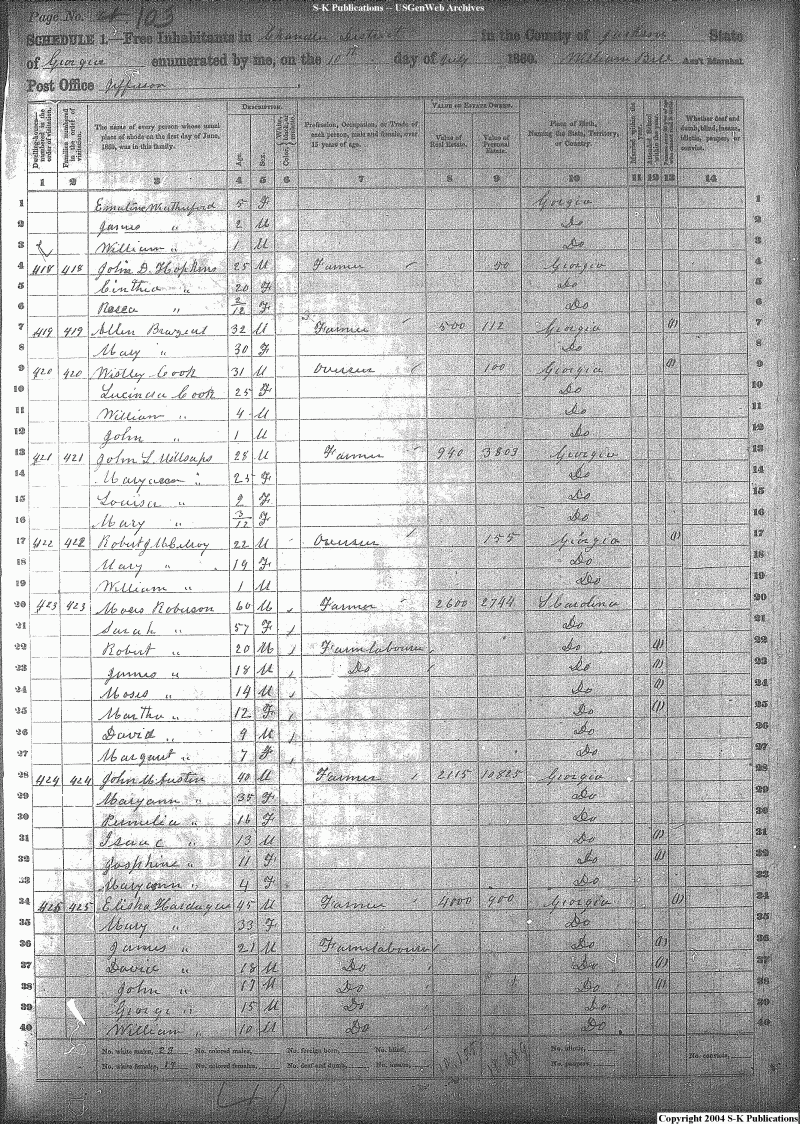 S-K Publications -- USGenWeb Archives
Page No. 103
SCHEDULE 1.—Free Inhabitants in Chandler District in the County of Jackson State
of Georgia enumerated by me, on the 10th day of July 1860. William Bell Ass't Marshal.
Post Office Jefferson
Dwelling-houses— numbered in the order of visitation.
Families numbered in the order of visitation.
The name of every person whose usual place of abode on the first day of June, 1860, was in this family.
DESCRIPTION.
Age.
Sex.
Color, White, black, or mulatto.
Profession, Occupation, or Trade of each person, male and female, over 15 years of age.
VALUE OF ESTATE OWNED.
Value of Real Estate.
Value of Personal Estate.
Place of Birth, Naming the State, Territory, or Country.
Married within the year.
Attended School within the year.
Whether deaf and dumb, blind, insane, idiotic, pauper, or convict.
1 2 3 4 5 6 7 8 9 10 11 12 13 14
1 Emaline 5 F Gorgia 1
2 James " 2 M Do 2
3 William " 1 M Do 3
4 418 418 John D. Hopkins 25 M Farmer Georgia 4
5 Cinthia " 20 F Do 5
6 " 2/12 F Do 6
7 419 419 Allen 32 M Farmer 500 112 Georgia (1) 7
8 Mary " 30 F Do 8
9 420 420 Cook 31 M Overseer 100 Georgia (1) 9
10 Lucinda Cook 25 F Do 10
11 William " 4 M Do 11
12 John " 1 M Do 12
13 421 421 John L. Millsaps 28 M Farmer 940 3803 Georgia 13
14 Maryann " 25 F Do 14
15 Louisa " 2 F Do 15
16 Mary " 3/12 F Do 16
17 422 422 Robert J McElroy 22 M Overseer 155 Georgia (1) 17
18 Mary " 19 F Do 18
19 William " 1 M Do 19
20 423 423 Moses Roberson 60 M Farmer 2600 2744 S Carolina 20
21 Sarah " 57 F Do 21
22 Robert " 20 M Farmlabourer Do (1) 22
23 James " 18 M Do Do (1) 23
24 Moses " 14 M Do (1) 24
25 Martha " 12 F Do (1) 25
26 David " 9 M Do 26
27 Margaret " 7 F Do 27
28 424 424 John McCustin 40 M Farmer 2115 10825 Georgia 28
29 Maryann " 35 F Do 29
30 Permelia " 16 F Do 30
31 Isaac " 13 M Do (1) 31
32 Josphine " 11 F Do (1) 32
33 Maryann " 4 F Do 33
34 425 425 Elisha 45 M Farmer 4000 900 Georgia (1) 34
35 Mary " 33 F Do 35
36 James " 21 M Farmlabourer Do (1) 36
37 David " 18 M Do Do (1) 37
38 John " 17 M Do Do (1) 38
39 George " 15 M Do Do 39
40 William " 10 M Do Do 40
No. white males, 23 No. colored males, No. foreign born, No. blind, No. idiotic, No. convicts,
No. white females, 17 No. colored females, No. deaf and dumb, No. insane, No. paupers,
40
Copyright 2004 S-K Publications